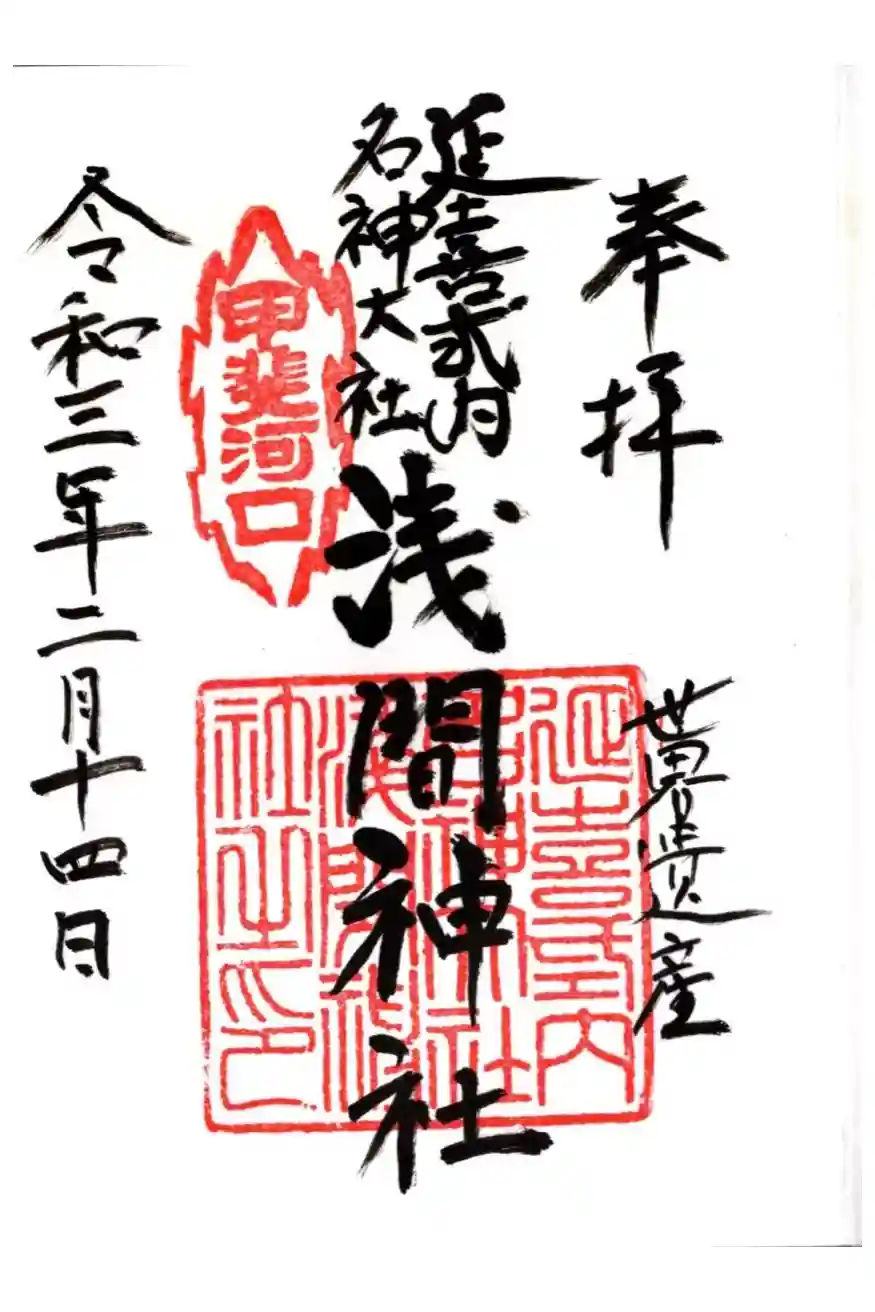 奉拝
世界遺産
延喜式内
名神大社
浅間神社
甲斐河口
延喜式内
名神大社
浅間神
社之印
令和三年二月十四日